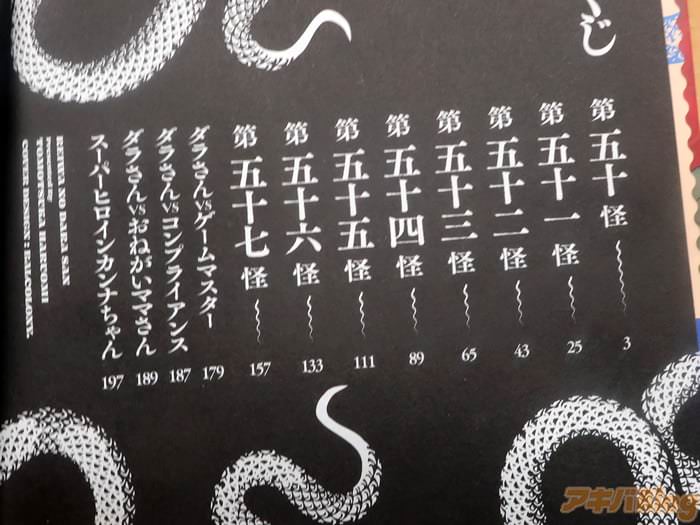 くじ
第五十怪 3
第五十一怪 25
第五十二怪 43
第五十三怪 65
第五十四怪 89
第五十五怪 111
第五十六怪 133
第五十七怪 157
ダラさんVSゲームマスター 179
ダラさんVSコンプライアンス 187
ダラさんVSおねがいママさん 189
スーパーヒロインカンナちゃん 197
アキバBlog